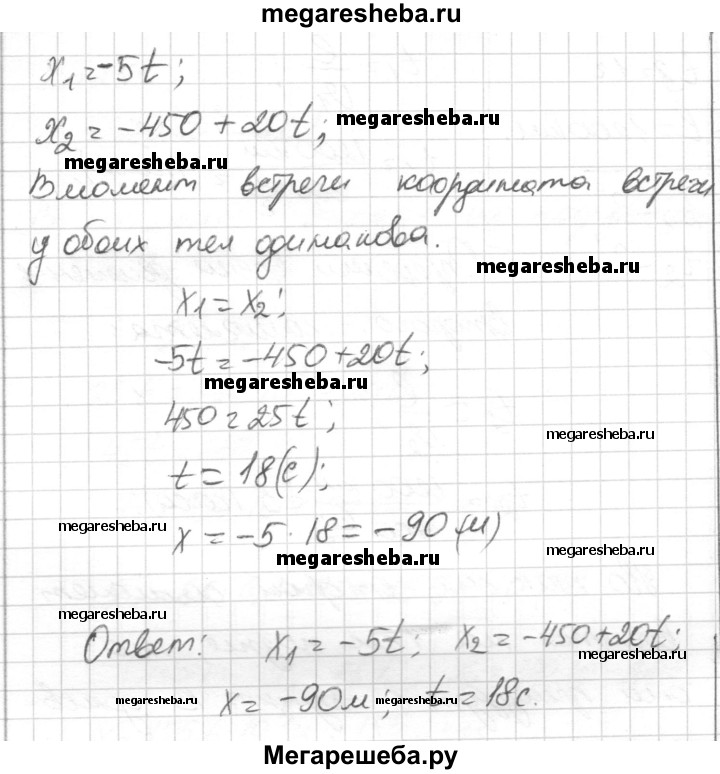 megaresheba.ru
x₁ = -5t;
x₂ = -450 + 20t; megaresheba.ru
megaresheba.ru
В момент встречи координата встречи
у обоих тел одинакова.
megaresheba.ru
x₁ = x₂;
-5t = -450 + 20t;
megaresheba.ru
450 = 25t;
megaresheba.ru
t = 18(с);
megaresheba.ru x = -5 · 18 = -90 (м)
megaresheba.ru
megaresheba.ru
megaresheba.ru
Ответ: x₁ = -5t; x₂ = -450 + 20t;
megaresheba.ru
x = -90 м; t = 18 с.
megaresheba.ru megaresheba.ru
Мегарешеба.ру